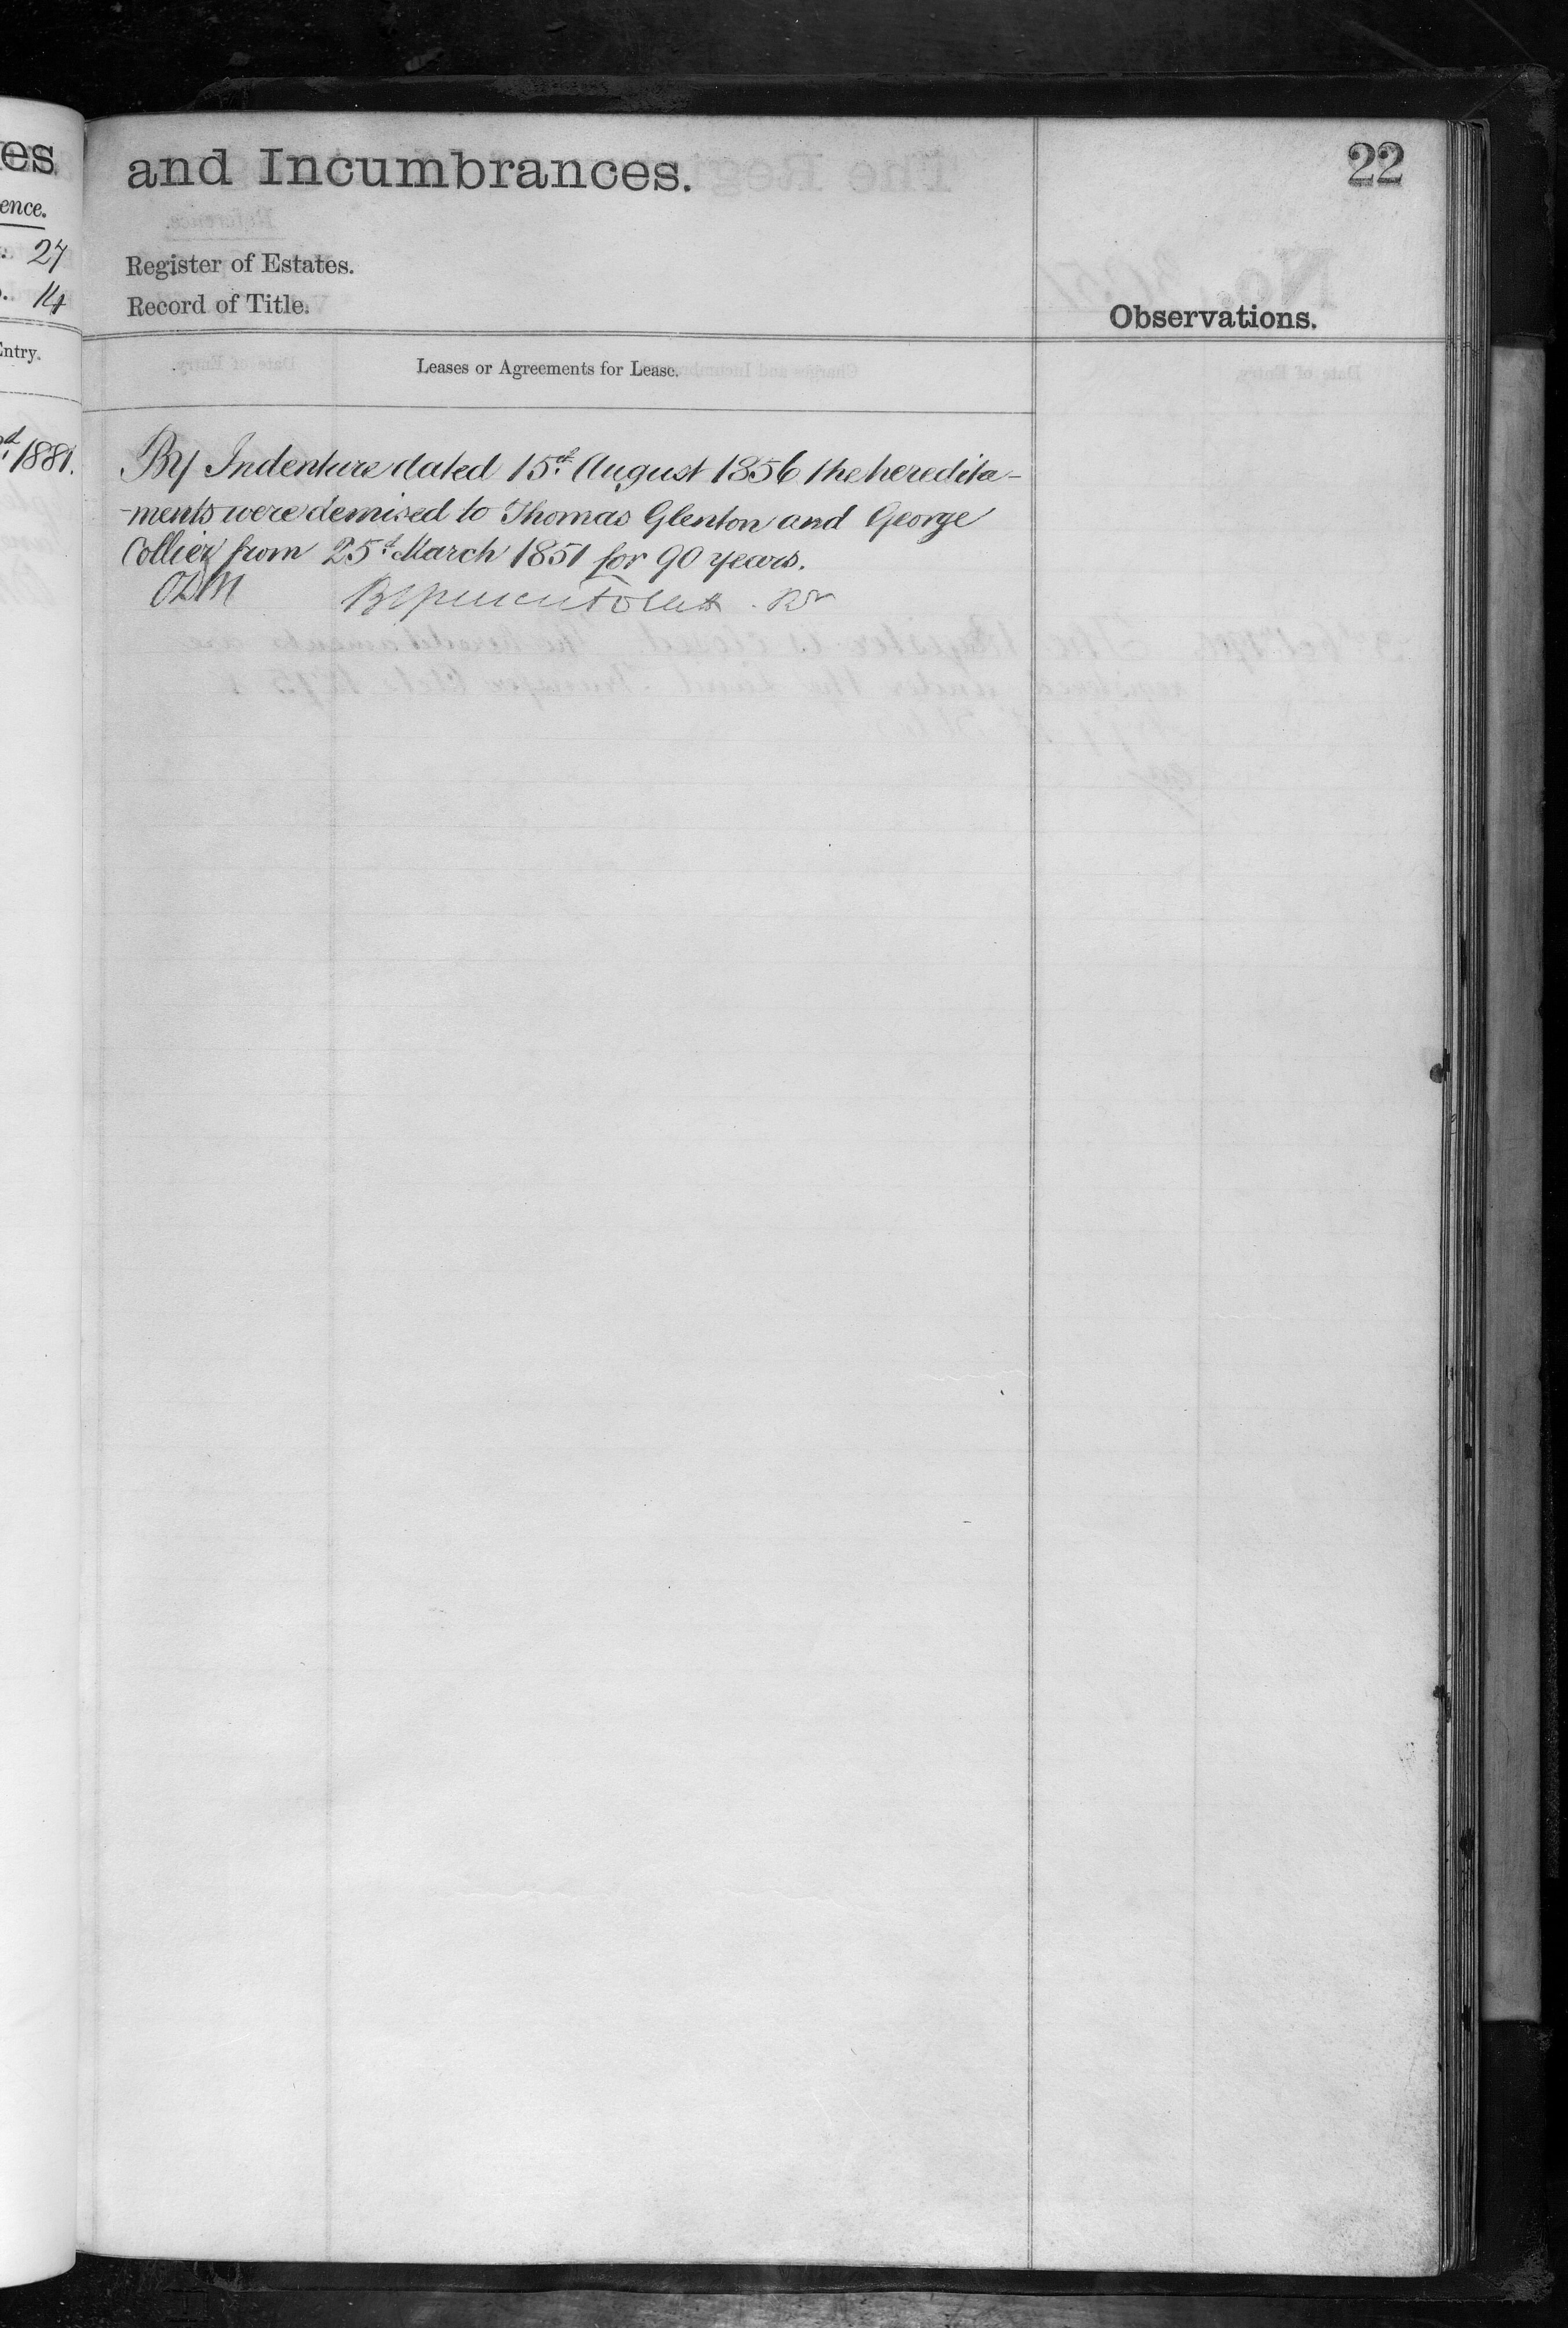 es
and Incumbrances.
22
ence.
27
Register of Estates.
14
Record of Title.
Observations.
Entry.
Leases or Agreements for Lease.
1881.
By Indenture dated 15th August 1856 the heredita-
-ments were demised to Thomas Glenton and George
Collier from 25th March 1851 for 90 years.